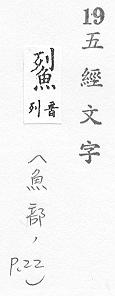 19
五經文字
⿱列魚
音列
(魚部, P.22)